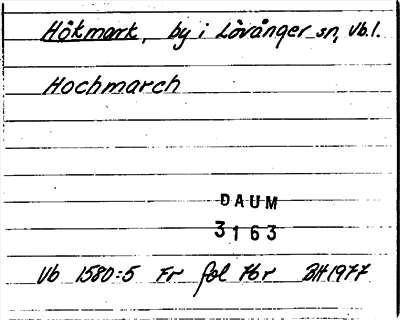 Hökmark, by i Lövånger sn, Vb.l.
Hochmarch
DAUM
3163
Vb 1580:5 Fr fol 76r BH 1977